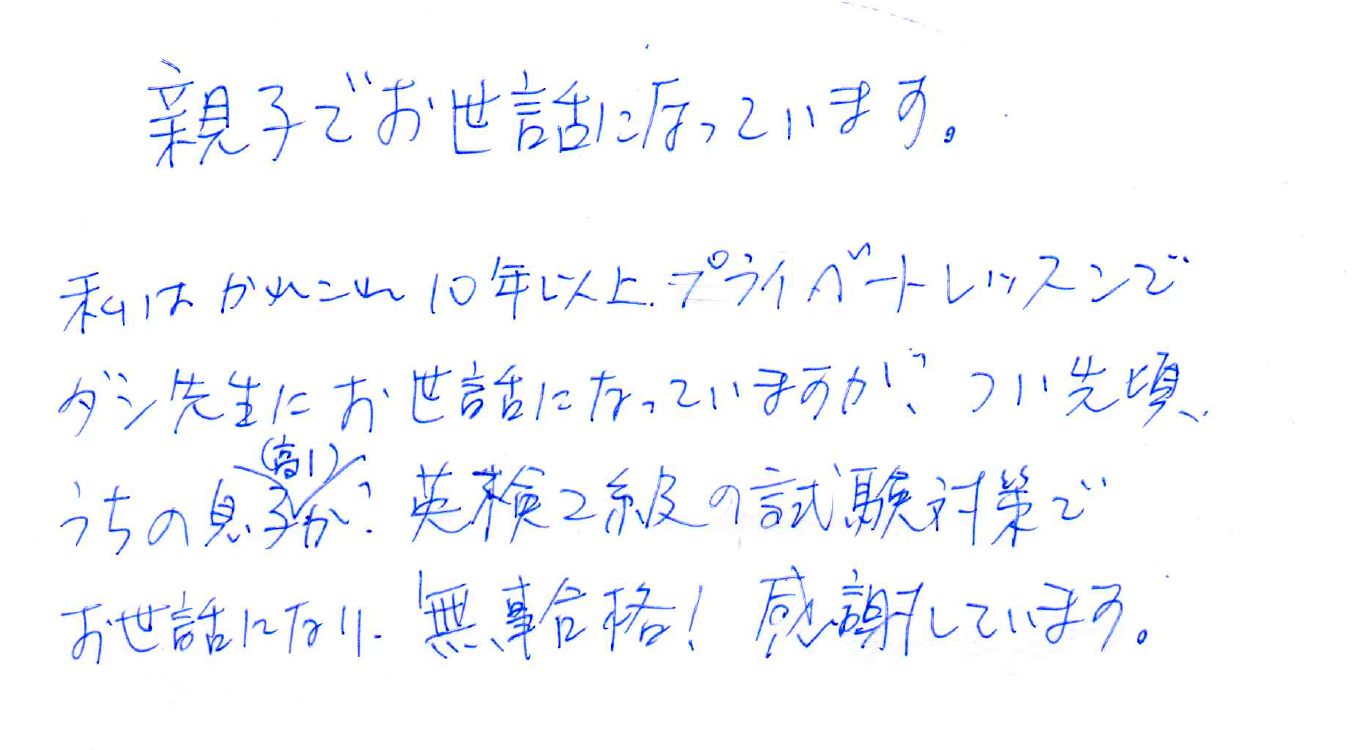 親子でお世話になっています。
私はかれこれ10年以上、プライベートレッスンで
ダン先生にお世話になっていますが、つい先頃、
うちの息子(高1)が、英検2級の試験対策で
お世話になり、無事合格！ 感謝しています。